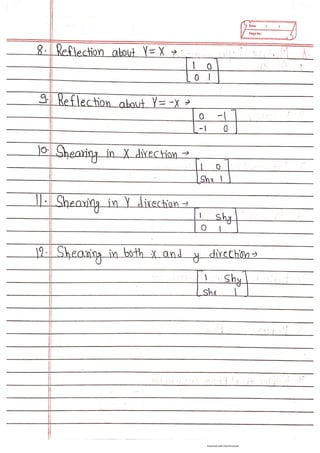 Date / /
Page No.
8. Reflection about Y=X →
1 0
0 1
9. Reflection about Y=-X →
0 -1
-1 0
10. Shearing in X direction →
1 0
Shx 1
11. Shearing in Y direction →
1 Shy
0 1
12. Shearing in both x and y direction →
1 Shy
Shx 1
Scanned with CamScanner